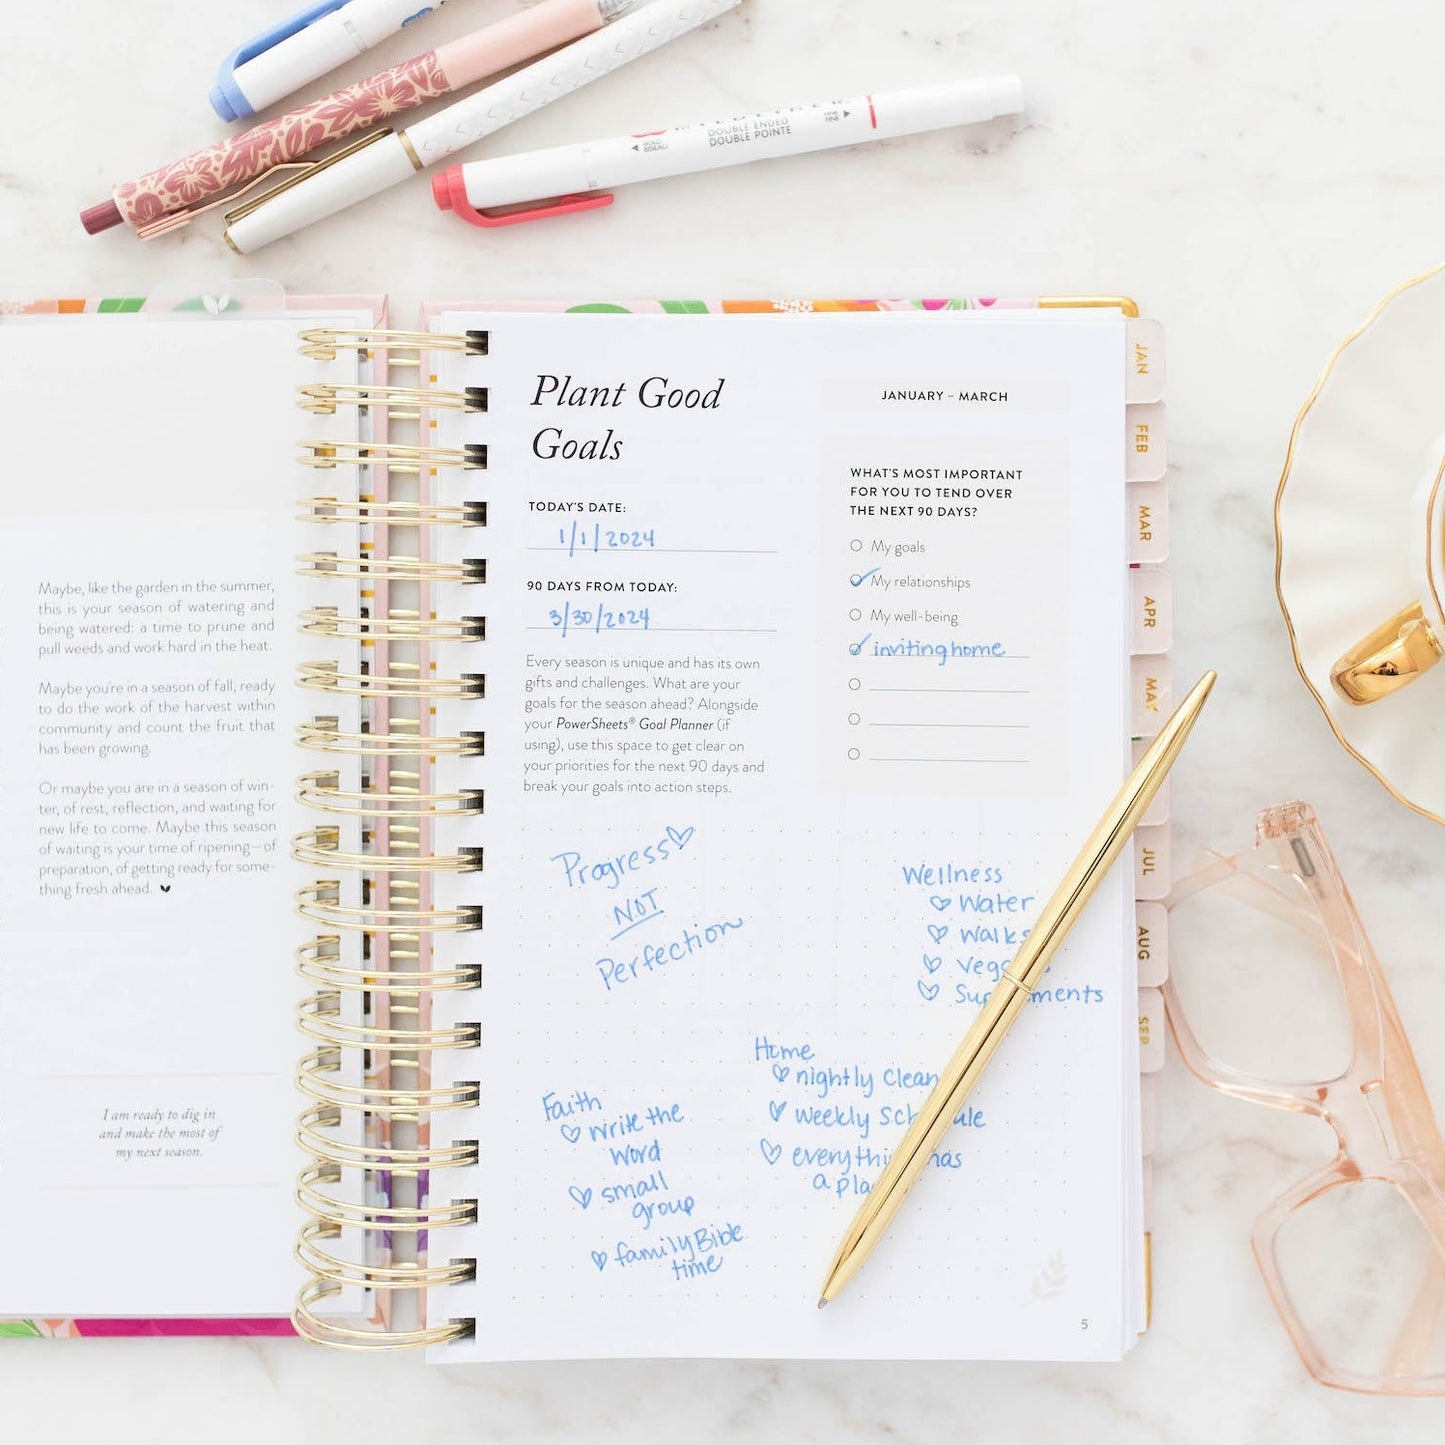 DOUBLE ENDED
DOUBLE POINTE
BOLD
BISEAU
FINE
FINE
Maybe, like the garden in the summer,
this is your season of watering and
being watered: a time to prune and
pull weeds and work hard in the heat.
Maybe you're in a season of fall, ready
to do the work of the harvest within
community and count the fruit that
has been growing.
Or maybe you are in a season of win-
ter, of rest, reflection, and waiting for
new life to come. Maybe this season
of waiting is your time of ripening—of
preparation, of getting ready for some-
thing fresh ahead.
I am ready to dig in
and make the most of
my next season.
Plant Good
Goals
TODAY'S DATE:
1/1/2024
90 DAYS FROM TODAY:
3/30/2024
Every season is unique and has its own
gifts and challenges. What are your
goals for the season ahead? Alongside
your PowerSheets® Goal Planner (if
using), use this space to get clear on
your priorities for the next 90 days and
break your goals into action steps.
JANUARY – MARCH
WHAT'S MOST IMPORTANT
FOR YOU TO TEND OVER
THE NEXT 90 DAYS?
My goals
My relationships
My well-being
inviting home
Progress
NOT
Perfection
Wellness
Water
Walks
Supplements
Home
nightly Clean
weekly Schedule
everything has
a
Faith
Write the
Word
small
group
family Bible
time
5
JAN
FEB
MAR
APR
MAY
JUL
AUG
SEP